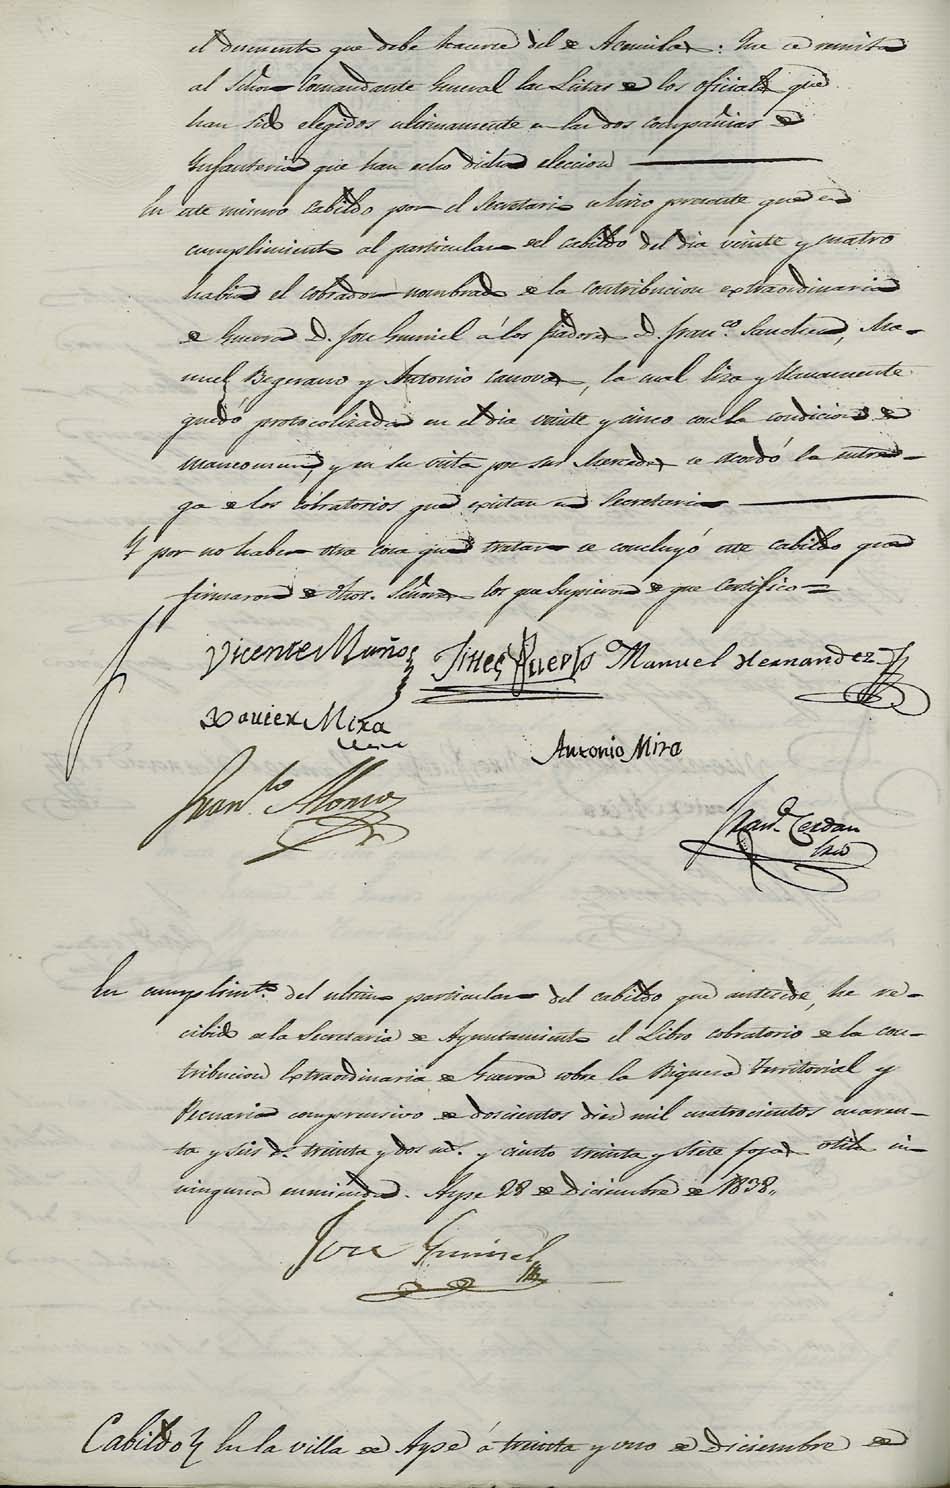 el documento que debe hacerse del de Acemilas: Que se remita
al Señor Comandante General las Listas de los oficiales que
han sido elegidos ultimamente en las dos compañias de
Infanteria que han echo dicha eleccion
En este mismo Cabildo por el Secretario se hizo presente que en
cumplimiento al particular del cabildo del dia veinte y cuatro
habia el cobrador nombrado de la contribucion extraordinaria
de Guerra D. Jose Gumiel á los fiadores D. Fran.co Sanchez, Ma-
nuel Begerano y Antonio Canovas, la cual liza y llanamente
quedó protocolizada en el dia veinte y cinco con la condicion de
mancomun, y en su vista por sus Mercedes se acordó la entre-
ga de los Cobratorios que existan en Secretaria
Y por no haber otra cosa que tratar se concluyó este cabildo que
firmaron de dhos. Señores los que supieron de que Certifico =
Vicente Muñoz Jines Puerto Manuel Hernandez
Xavier Mira
Antonio Mira
Fran.co Alonso
Fran.co Cerdan
Srio
En cumplimto. del ultimo particular del cabildo que antecede, he re-
cibido de la Secretaria de Ayuntamiento el Libro cobratorio de la con-
tribucion Extraordinaria de Guerra sobre la Riqueza Territorial y
Pecuaria comprensivo de doscientos diez mil cuatrocientos cuaren-
ta y seis r. treinta y dos mrs. y ciento treinta y siete fojas utiles sin
ninguna enmienda. Aspe 28 de Diciembre de 1838.
Jose Gumiel
Cabildo En la villa de Aspe á treinta y uno de Diciembre de